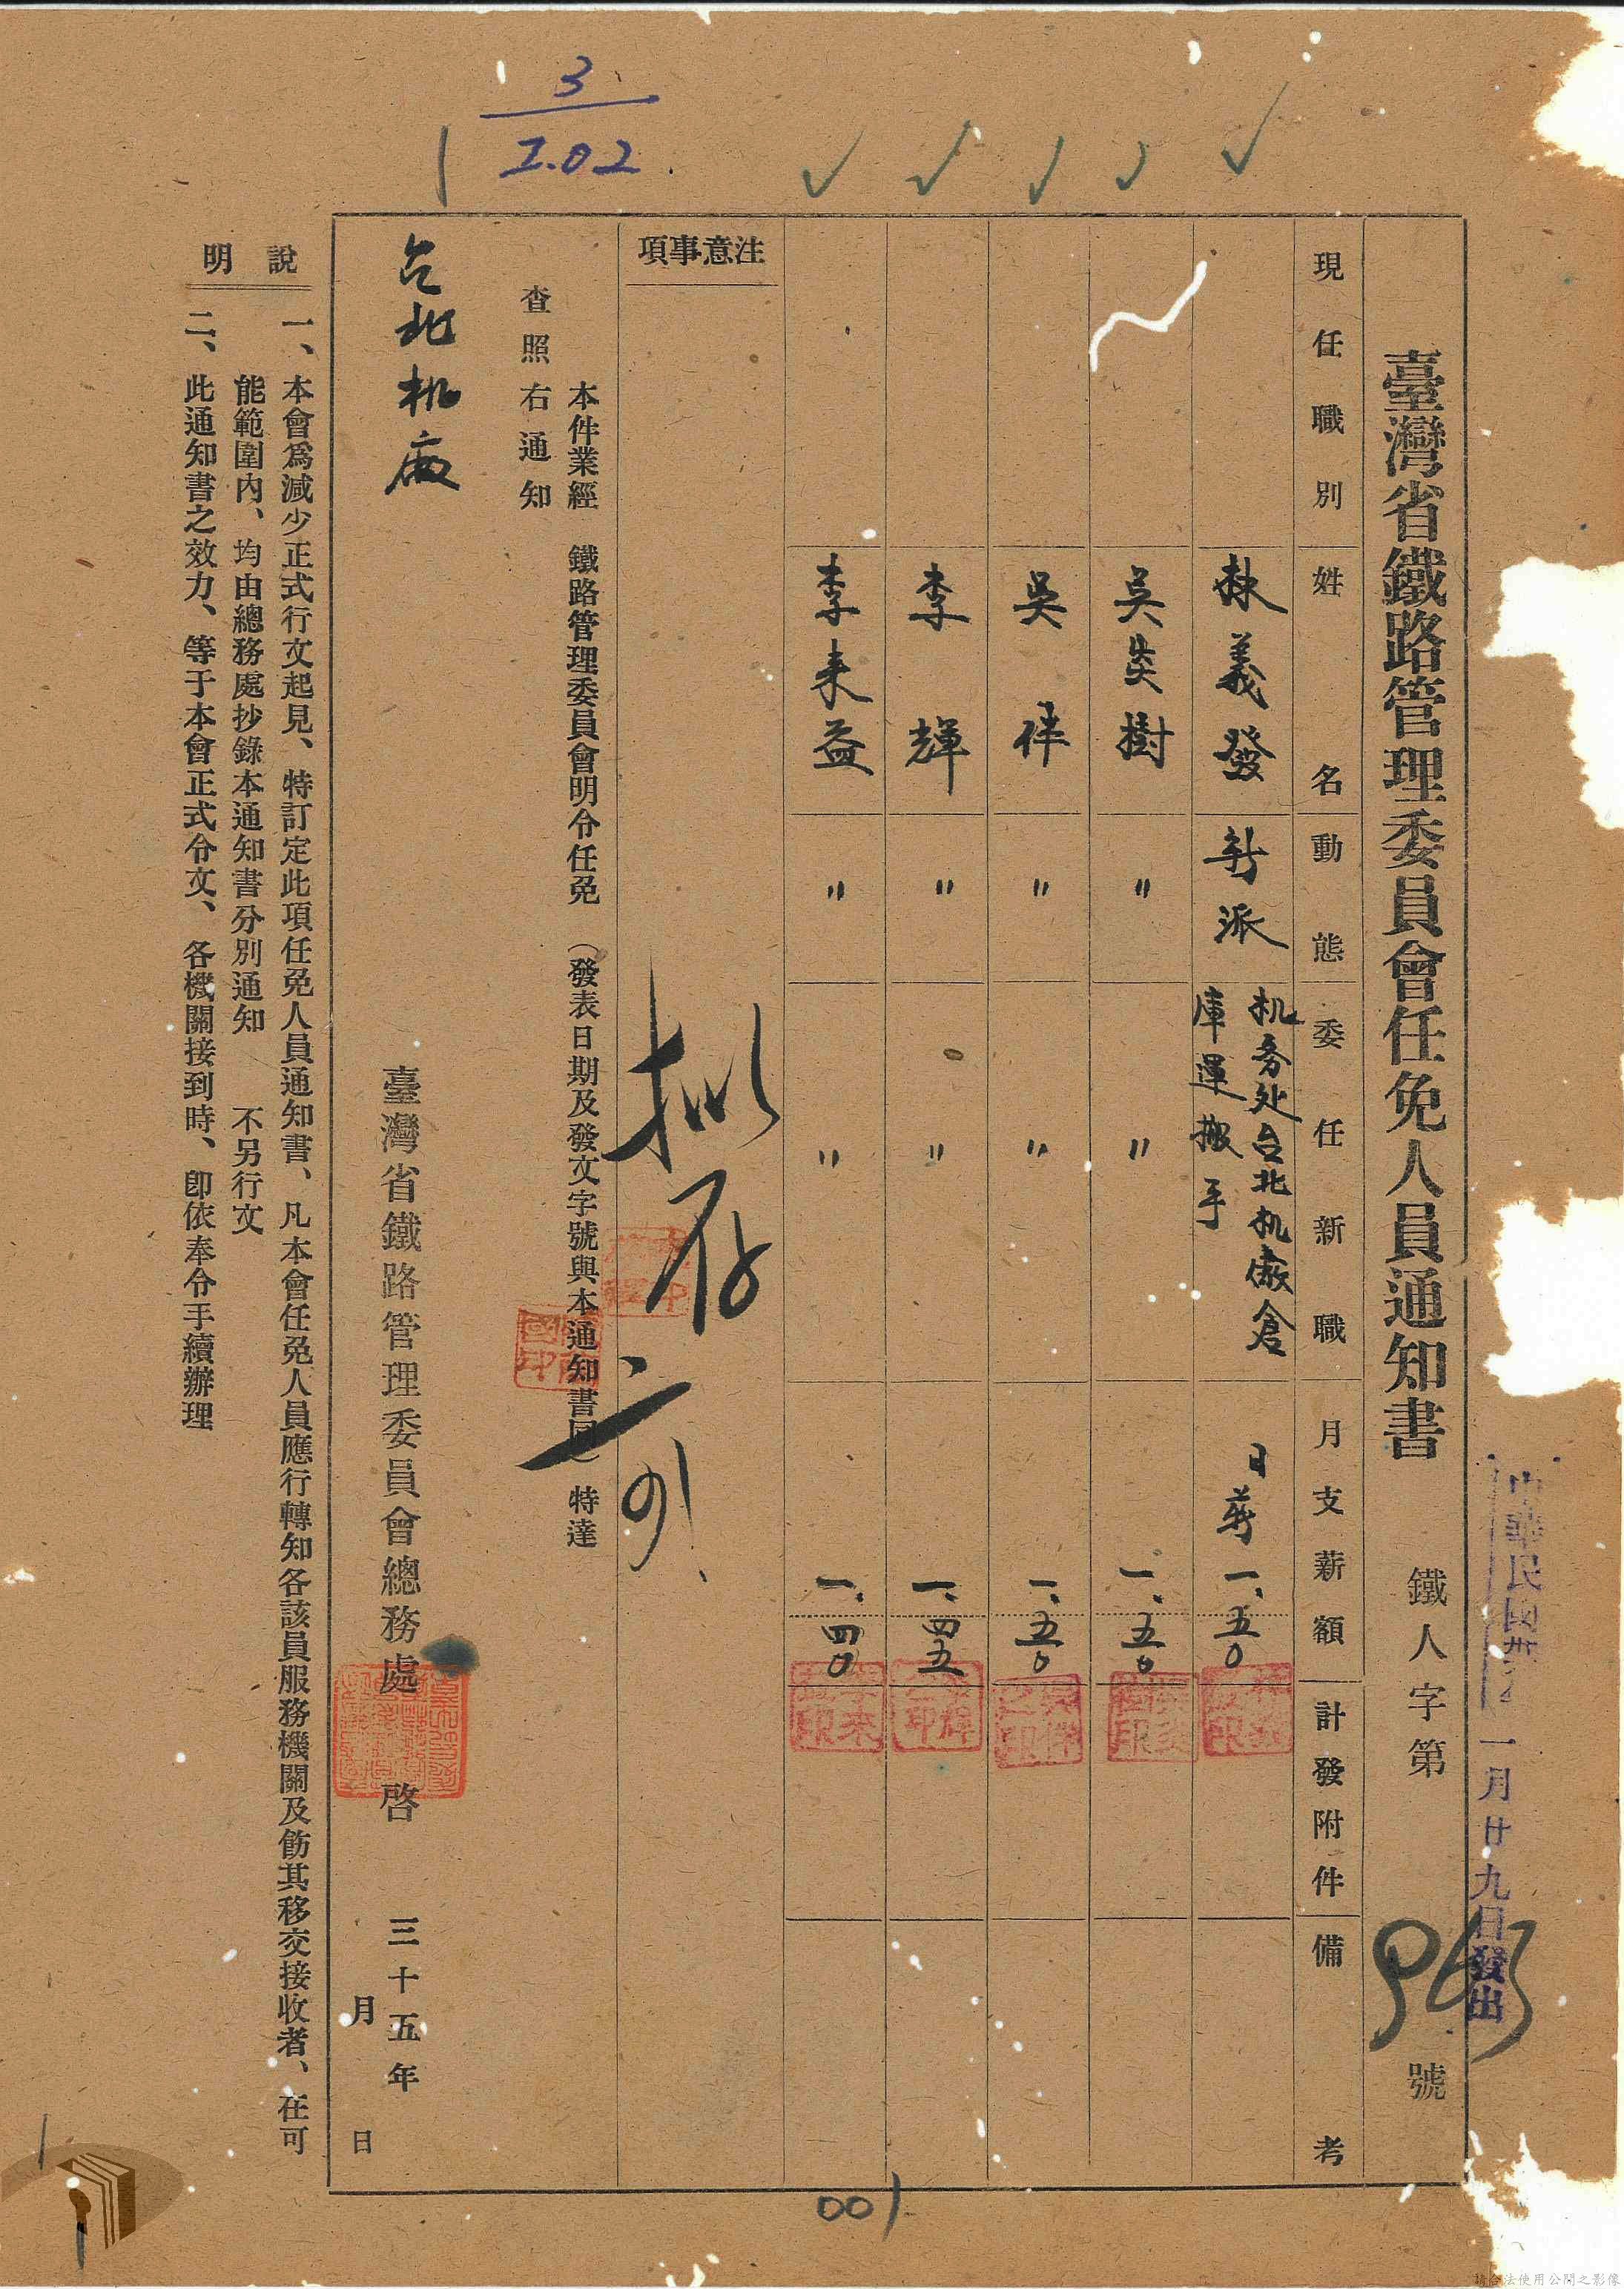 臺灣省鐵路管理委員會任免人員通知書
鐵人字第963號
一月廿九日發出
現任職別
姓名
動態
委任新職
月支薪額
計發附件
備考
義發
新派
机务处台北机廠倉
庫運搬手
日薪
一、五〇
吳炎樹
〃
〃
一、五〇
吳
〃
〃
一、五〇
李輝
〃
〃
一、四五
李来益
〃
〃
一、四〇
注意事項
拟存
本件業經 鐵路管理委員會明令任免（發表日期及發文字號與本通知書同）特達
查照右通知
台北机廠
臺灣省鐵路管理委員會總務處 啓
三十五年
月 日
說明
一、本會爲減少正式行文起見、特訂定此項任免人員通知書、凡本會任免人員應行轉知各該員服務機關及飭其移交接收者、在可
能範圍內、均由總務處抄錄本通知書分別通知 不另行文
二、此通知書之效力、等于本會正式令文、各機關接到時、卽依奉令手續辦理
3
2.02
001
請合法使用公開之影像